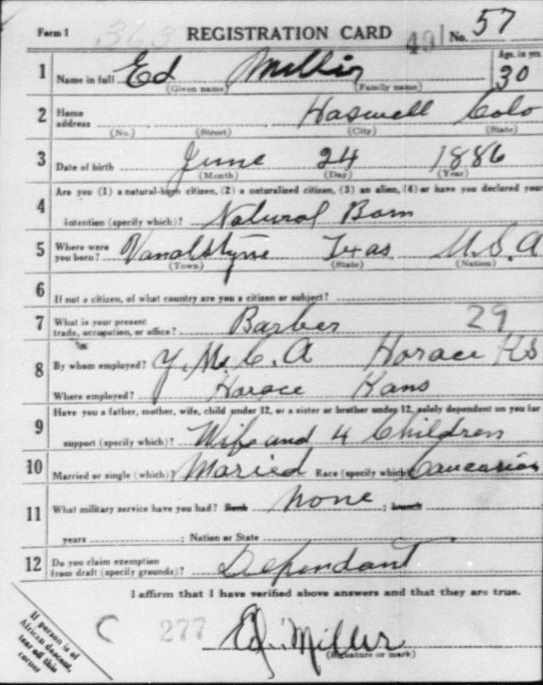 Form 1 363 REGISTRATION CARD 491 No. 57
1 Name in full Ed Miller Age, in yrs 30
(Given name) (Family name)
2 Home address Haswell Colo
(No.) (Street) (City) (State)
3 Date of birth June 24 1886
(Month) (Day) (Year)
Are you (1) a natural-born citizen, (2) a naturalized citizen, (3) an alien, (4) or have you declared your
4 intention (specify which)? Natural Born
5 Where were you born? Vanalstyne Texas U.S.A
(Town) (State) (Nation)
6 If not a citizen, of what country are you a citizen or subject?
7 What is your present trade, occupation, or office? Barber 29
8 By whom employed? Y.M.C.A Horace KS
Where employed? Horace Kans
Have you a father, mother, wife, child under 12, or a sister or brother under 12, solely dependent on you for
9 support (specify which)? Wife and 4 Children
10 Married or single (which)? Maried Race (specify which)? Caucasian
11 What military service have you had? Rank None ; branch
years ; Nation or State
12 Do you claim exemption from draft (specify grounds)? Dependant
I affirm that I have verified above answers and that they are true.
C 277 Ed. Miller
(Signature or mark)
If person is of
African descent,
tear off this
corner